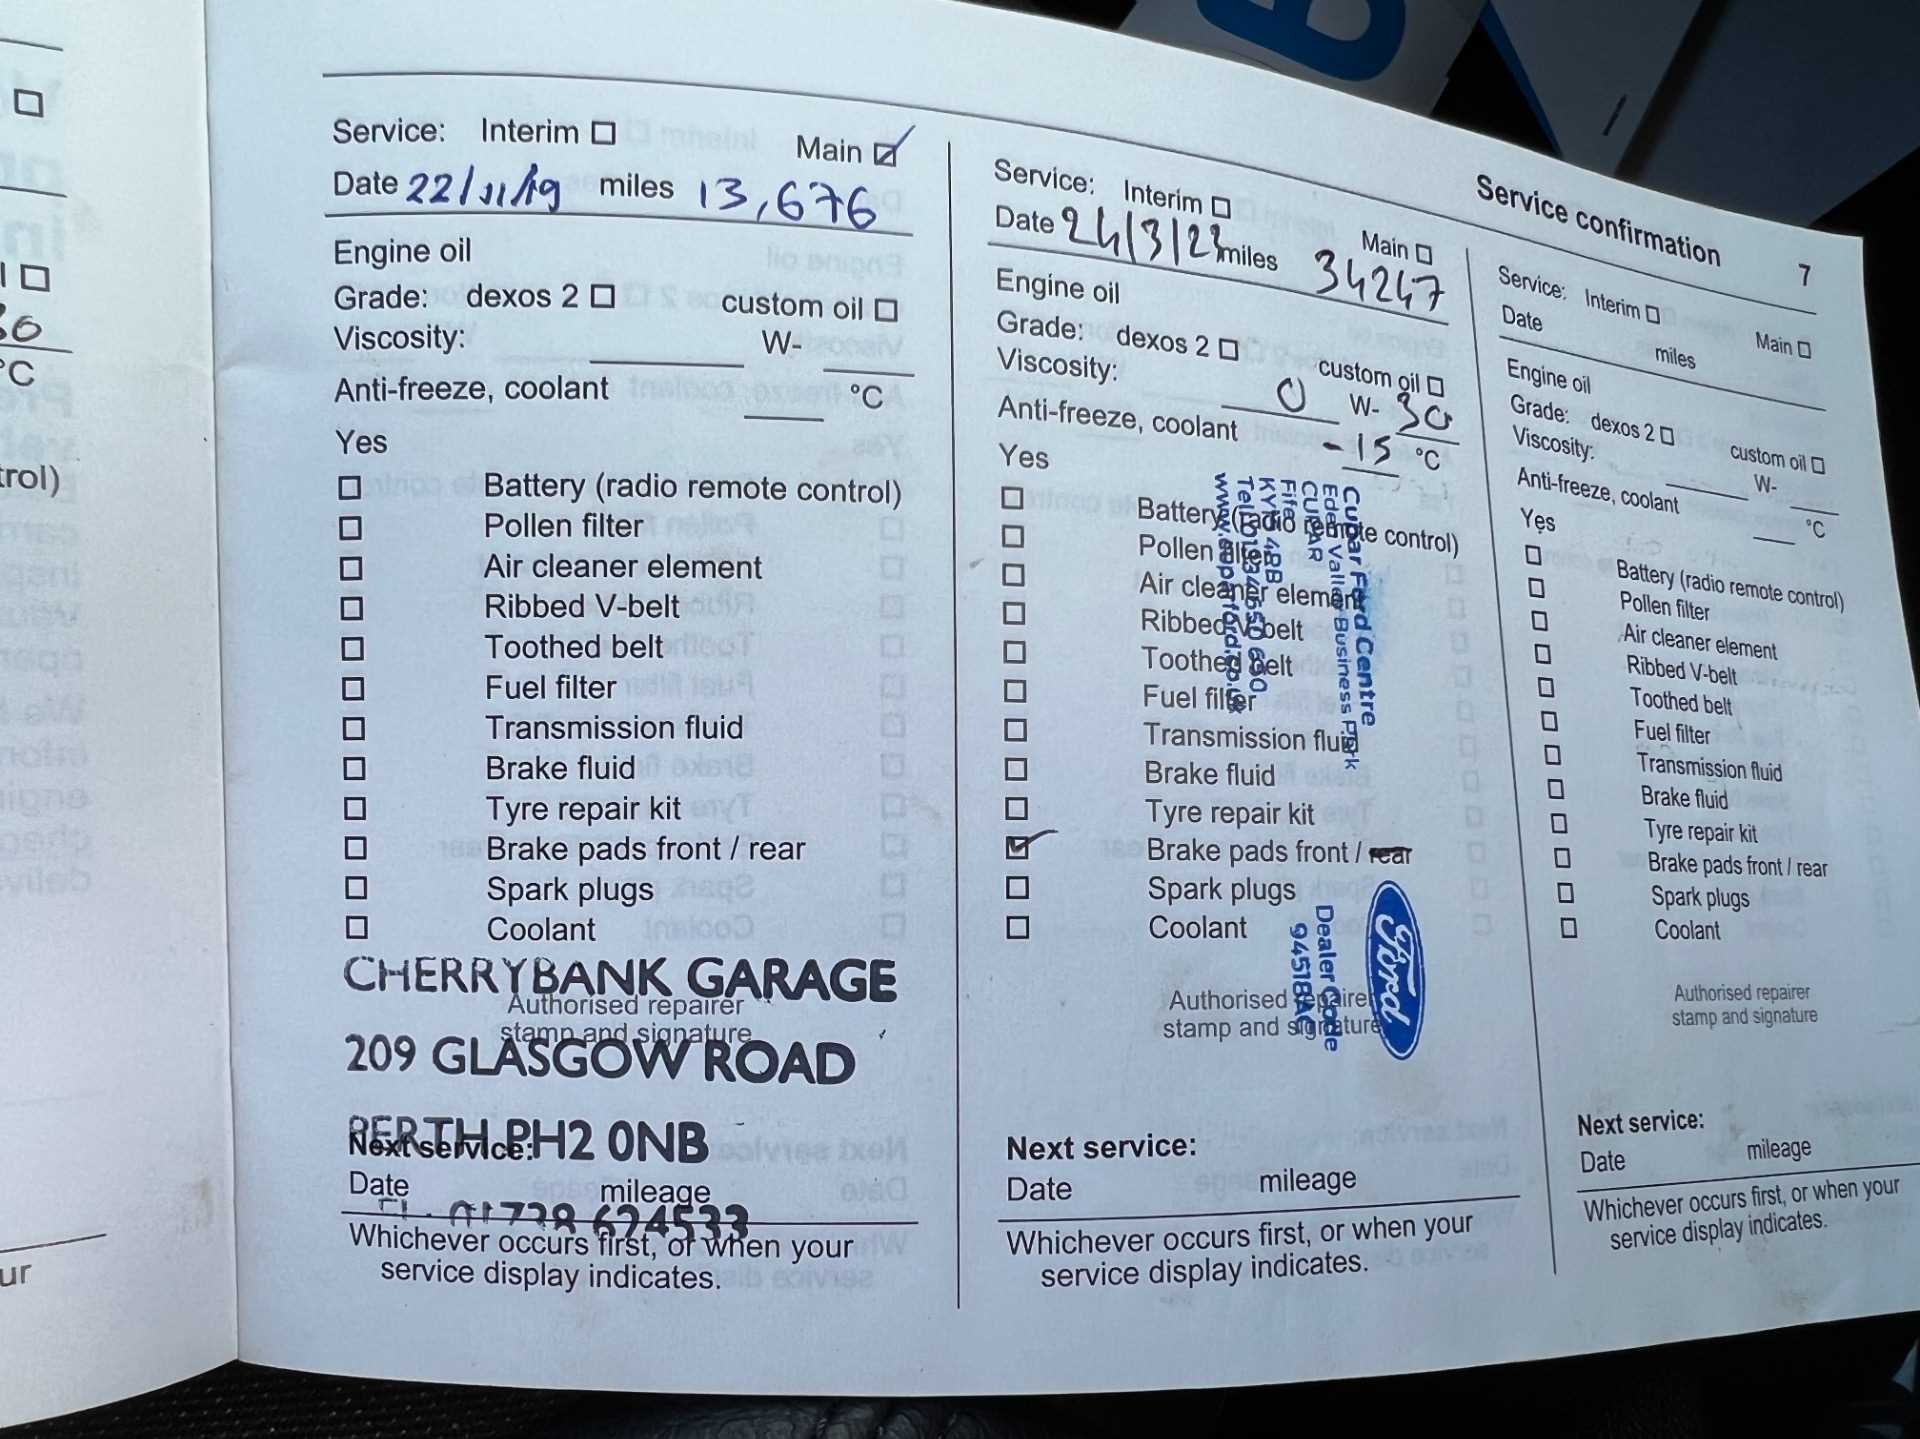 Service confirmation 7
Service: Interim
Main
Date 22/11/19 miles 13,676
Engine oil
Grade: dexos 2 custom oil
Viscosity: W-
Anti-freeze, coolant °C
Yes
Battery (radio remote control)
Pollen filter
Air cleaner element
Ribbed V-belt
Toothed belt
Fuel filter
Transmission fluid
Brake fluid
Tyre repair kit
Brake pads front / rear
Spark plugs
Coolant
CHERRYBANK GARAGE
Authorised repairer
stamp and signature
209 GLASGOW ROAD
PERTH PH2 0NB
Next service:
Date mileage
01738 624533
Whichever occurs first, or when your
service display indicates.
Service: Interim
Main
Date 24/3/23 miles 34247
Engine oil
Grade: dexos 2 custom oil
Viscosity: 0 W- 30
Anti-freeze, coolant -15 °C
Yes
Battery (radio remote control)
Pollen filter
Air cleaner element
Ribbed V-belt
Toothed belt
Fuel filter
Transmission fluid
Brake fluid
Tyre repair kit
Brake pads front / rear
Spark plugs
Coolant
Cupar Ford Centre
Eden Valley Business Park
CUPAR
Fife
4RB
Ford
Dealer Code
Authorised repairer
stamp and signature
Next service:
Date mileage
Whichever occurs first, or when your
service display indicates.
Service: Interim
Main
Date miles
Engine oil
Grade: dexos 2 custom oil
Viscosity: W-
Anti-freeze, coolant °C
Yes
Battery (radio remote control)
Pollen filter
Air cleaner element
Ribbed V-belt
Toothed belt
Fuel filter
Transmission fluid
Brake fluid
Tyre repair kit
Brake pads front / rear
Spark plugs
Coolant
Authorised repairer
stamp and signature
Next service:
Date mileage
Whichever occurs first, or when your
service display indicates.